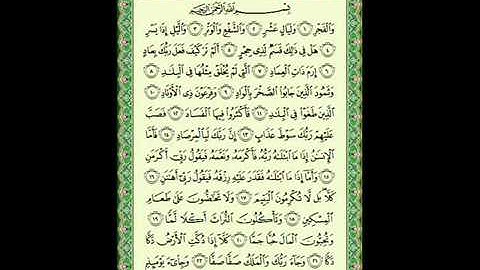 بِسْمِ ٱللَّهِ ٱلرَّحْمَٰنِ ٱلرَّحِيمِ
وَٱلْفَجْرِ ١ وَلَيَالٍ عَشْرٍ ٢ وَٱلشَّفْعِ وَٱلْوَتْرِ ٣ وَٱلَّيْلِ إِذَا يَسْرِ
٤ هَلْ فِي ذَٰلِكَ قَسَمٌ لِّذِي حِجْرٍ ٥ أَلَمْ تَرَ كَيْفَ فَعَلَ رَبُّكَ بِعَادٍ
٦ إِرَمَ ذَاتِ ٱلْعِمَادِ ٧ ٱلَّتِي لَمْ يُخْلَقْ مِثْلُهَا فِي ٱلْبِلَٰدِ ٨
وَثَمُودَ ٱلَّذِينَ جَابُوا۟ ٱلصَّخْرَ بِٱلْوَادِ ٩ وَفِرْعَوْنَ ذِي ٱلْأَوْتَادِ ١٠
ٱلَّذِينَ طَغَوْا۟ فِي ٱلْبِلَٰدِ ١١ فَأَكْثَرُوا۟ فِيهَا ٱلْفَسَادَ ١٢ فَصَبَّ
عَلَيْهِمْ رَبُّكَ سَوْطَ عَذَابٍ ١٣ إِنَّ رَبَّكَ لَبِٱلْمِرْصَادِ ١٤ فَأَمَّا
ٱلْإِنسَٰنُ إِذَا مَا ٱبْتَلَىٰهُ رَبُّهُۥ فَأَكْرَمَهُۥ وَنَعَّمَهُۥ فَيَقُولُ رَبِّي أَكْرَمَنِ
١٥ وَأَمَّآ إِذَا مَا ٱبْتَلَىٰهُ فَقَدَرَ عَلَيْهِ رِزْقَهُۥ فَيَقُولُ رَبِّي أَهَٰنَنِ ١٦
كَلَّا بَل لَّا تُكْرِمُونَ ٱلْيَتِيمَ ١٧ وَلَا تَحَٰٓضُّونَ عَلَىٰ طَعَامِ
ٱلْمِسْكِينِ ١٨ وَتَأْكُلُونَ ٱلتُّرَاثَ أَكْلًا لَّمًّا ١٩
وَتُحِبُّونَ ٱلْمَالَ حُبًّا جَمًّا ٢٠ كَلَّآ إِذَا دُكَّتِ ٱلْأَرْضُ دَكًّا
دَكًّا ٢١ وَجَآءَ رَبُّكَ وَٱلْمَلَكُ صَفًّا صَفًّا ٢٢ وَجِا۟يٓءَ يَوْمَئِذٍۭ